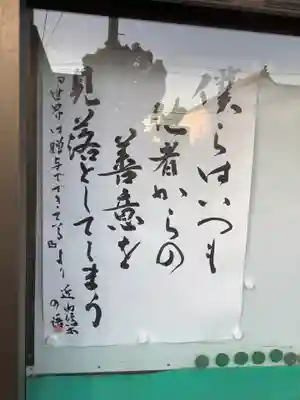 僕らはいつも
他者からの
善意を
見落としてしまう
『世界は贈与でできている』より
近内悠太
の語